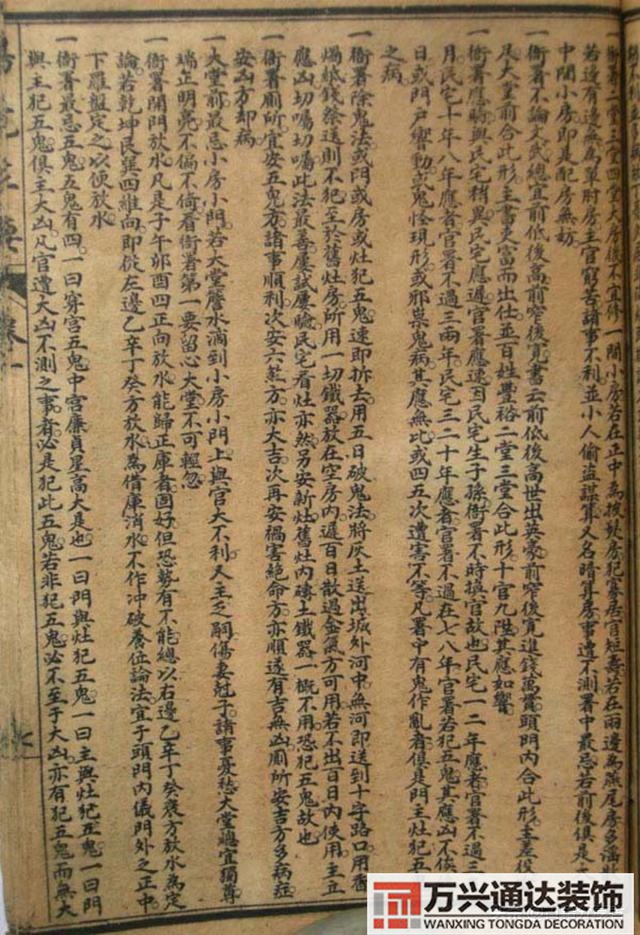 一衙署二堂三堂四堂大房後不宜得一間小房若在正中為披
若邊有邊無為單肘房主官窮苦諸事不利並小人偷盜謀算又名暗算房事遭不測署中最忌若前後俱是
中間小房即是配房無妨
一衙署不論文武總宜前低後高前窄後寬書云前低後高世出英豪前窄後寬進錢萬貫頭門內合此形主差役
足大堂前合此形主書吏富而出仕並百姓豐裕二堂三堂合此形十官九陞其應如響
一衙署應驗與民宅稍異民宅應遲官署應速因民宅生子孫衙署不時換官故也民宅一二年應者官署不過三
月民宅十年八年應者官署不過三兩年民宅三二十年應者官署不過在七八年官署若犯五鬼其應凶不俟
日或門戶響動或鬼怪現形或邪祟鬼病其應無比或四五次遭害不等凡署中有鬼作亂者俱是門主灶犯五
之病
一衙署除鬼法或門或房或灶犯五鬼速即拆去用五日破鬼法將灰土送出城外河中無河即送到十字路口用香
燭紙錢祭送則不犯至於舊灶房所用一切鐵器放在空房內過百日散過金氣方可用若不出百日內使用主立
應凶切囑切囑此法最善屢試屢驗民宅看灶亦然另安新灶舊灶內磚土鐵器一概不用恐犯五鬼故也
一衙署廁所宜安五鬼方諸事順利次安六煞方亦大吉次再安禍害絕命方亦順遂有吉無凶廁所安吉方多病症
安凶方却病
一大堂前最忌小房小門若大堂簷水滴到小房小門上與官大不利又主乏嗣傷妻尅子諸事憂愁大堂總宜獨尊
端正明亮不偏不倚看衙署第一要留心大堂不可輕忽
一衙署開門放水凡是子午卯酉四正向放水能歸正庫者固好但恐勢有不能總以右邊乙辛丁癸衰方放水為定
論若乾坤艮巽四維向即從左邊乙辛丁癸方放水為借庫消水不作冲破養位論法宜于頭門內儀門外之正中
下羅盤定之以便放水
一衙署最忌五鬼五鬼有四一曰穿宮五鬼中宮廉貞星高大是也一曰門與灶犯五鬼一曰主與灶犯五鬼一曰門
與主犯五鬼俱主大凶凡官遭大凶不測之事者必是犯此五鬼若非犯五鬼必不至于大凶亦有犯五鬼而無大
万兴通达装饰
WANXING TONGDA DECORATION